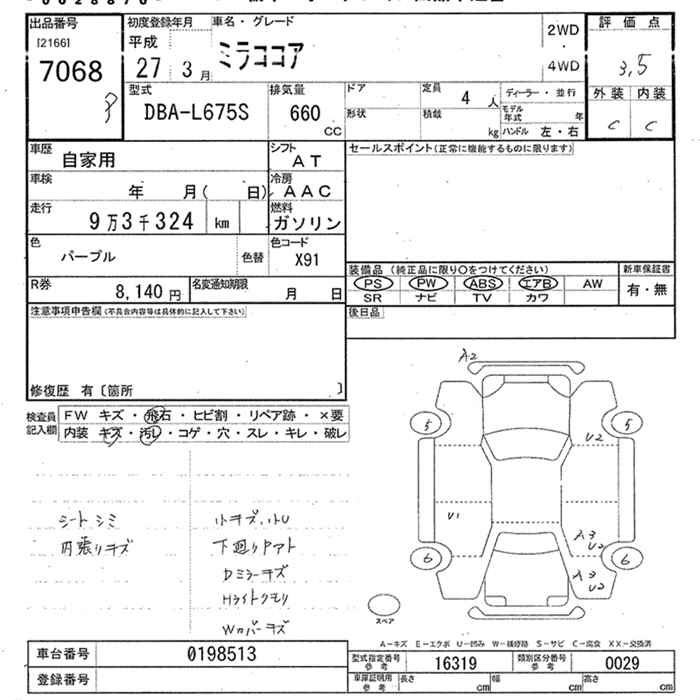 出品番号
[2166]
7068
初度登録年月
平成
27 3月
車名・グレード
ミラココア
2WD
4WD
評価点
3.5
外装 内装
C C
型式
DBA-L675S
排気量
660
CC
ドア
形状
定員
4 人
積載
kg
ディーラー・並行
モデル年式 年
ハンドル 左・右
車歴
自家用
シフト
AT
車検
年 月( 日)
冷房
AAC
走行
9万3千324 km
燃料
ガソリン
色
パープル
色替
色コード
X91
R券
8,140円
名変通知期限
月 日
セールスポイント(正常に機能するものに限ります)
装備品 (純正品に限り○をつけてください)
PS PW ABS エアB AW
SR ナビ TV カワ
新車保証書
有・無
後日品
注意事項申告欄(不具合内容等は具体的に記入して下さい)
修復歴 有〔箇所 〕
検査員記入欄
FW キズ・飛石・ヒビ割・リペア跡・×要
内装 キズ・汚レ・コゲ・穴・スレ・キレ・破レ
シートシミ
内張りキズ
小キズ、小U
下廻りサビ
Dミラーキズ
Hライトクモリ
Wカバーキズ
A2
5
5
U2
U1
A3
U2
6
6
A3
U2
スペア
A-キズ E-エクボ U-凹み W-補修跡 S-サビ C-腐食 XX-交換済
車台番号
0198513
登録番号
型式指定番号
参考
16319
類別区分番号
参考
0029
車庫証明用
参考
長さ cm
幅 cm
高さ cm